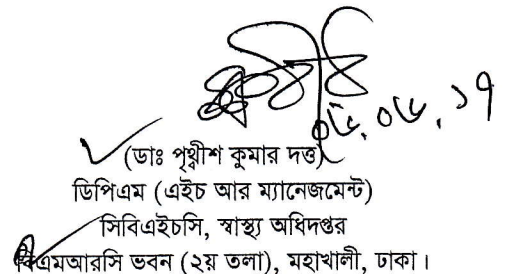 ০৬.০৬.১৭
(ডাঃ পৃথ্বীশ কুমার দত্ত)
ডিপিএম (এইচ আর ম্যানেজমেন্ট)
সিবিএইচসি, স্বাস্থ্য অধিদপ্তর
বিএমআরসি ভবন (২য় তলা), মহাখালী, ঢাকা।